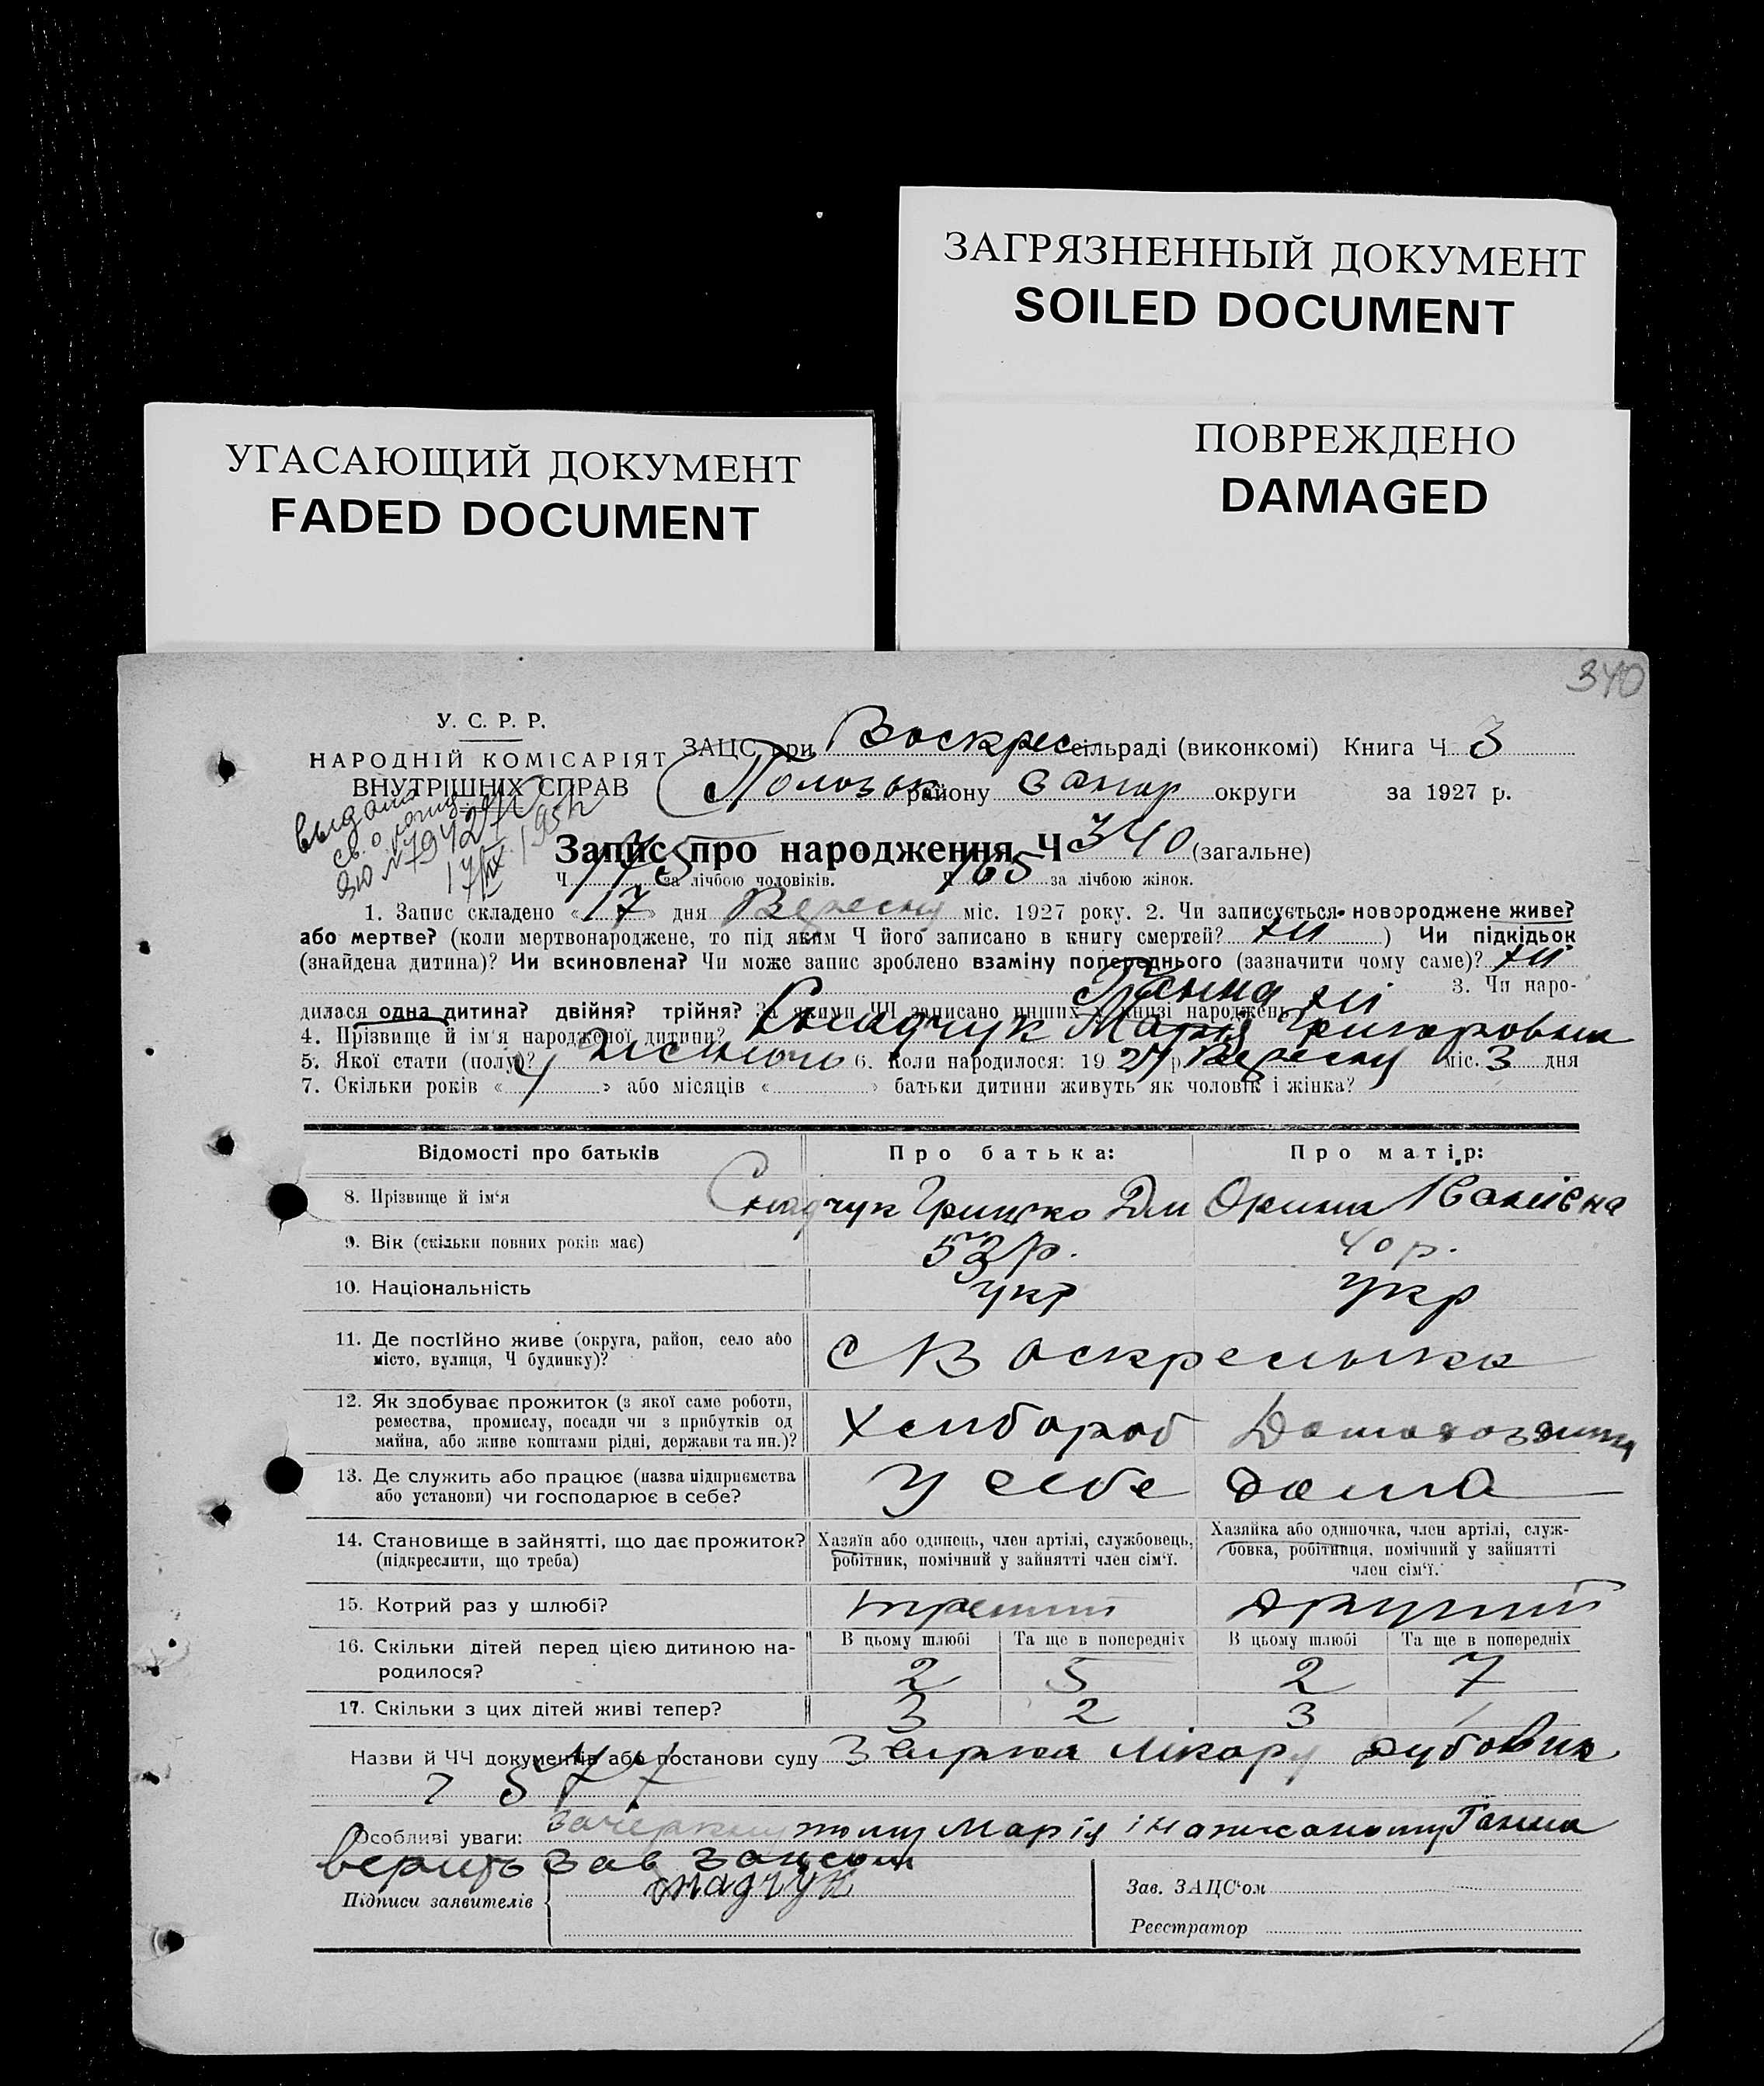 ЗАГРЯЗНЕННЫЙ ДОКУМЕНТ
SOILED DOCUMENT
ПОВРЕЖДЕНО
DAMAGED
УГАСАЮЩИЙ ДОКУМЕНТ
FADED DOCUMENT
340
У. С. Р. Р.
НАРОДНІЙ КОМІСАРІЯТ
ВНУТРІШНІХ СПРАВ
ЗАЦС при Воскрес сільраді (виконкомі) Книга Ч 3
району Запор округи за 1927 р.
Запис про народження Ч 340 (загальне)
Ч 175 за лічбою чоловіків. Ч 165 за лічбою жінок.
1. Запис складено « 17 » дня Вересня міс. 1927 року. 2. Чи записується новороджене живе?
або мертве? (коли мертвонароджене, то під яким Ч його записано в книгу смертей? ні ) Чи підкідьок
(знайдена дитина)? Чи всиновлена? Чи може запис зроблено взаміну попереднього (зазначити чому саме)? ні
3. Чи наро-
дилася одна дитина? двійня? трійня? За якими ЧЧ записано инших у книзі народжень ні
Ганна
4. Прізвище й ім'я народженої дитини? Снадчук Марія Григоровна
5. Якої стати (полу)? жіночо 6. Коли народилося: 1927 р. Вересня міс. 3 дня
7. Скільки років « 4 » або місяців « » батьки дитини живуть як чоловік і жінка?
Відомості про батьків Про батька: Про матір:
8. Прізвище й ім'я Снадчук Грицько Дм Орина Іванівна
9. Вік (скільки повних років має) 53 р. 40 р.
10. Національність укр укр
11. Де постійно живе (округа, район, село або
місто, вулиця, Ч будинку)? с Воскресенка
12. Як здобуває прожиток (з якої саме роботи,
ремества, промислу, посади чи з прибутків од
майна, або живе коштами рідні, держави та ин.)? Хлібороб
13. Де служить або працює (назва підприємства
або установи) чи господарює в себе? У себе дома
14. Становище в зайнятті, що дає прожиток? (підкреслити, що треба)
Хазяїн або одинець, член артілі, службовець,
робітник, помічний у зайнятті член сім'ї.
Хазяйка або одиночка, член артілі, служ-
бовка, робітниця, помічний у зайнятті
член сім'ї.
15. Котрий раз у шлюбі? третий другий
16. Скільки дітей перед цією дитиною на-
родилося?
В цьому шлюбі Та ще в попередніх В цьому шлюбі Та ще в попередніх
2 5 2 7
17. Скільки з цих дітей живі тепер? 3 2 3
Назви й ЧЧ документів або постанови суду лікаря Дубовик
577
Особливі уваги: зачеркнутому Марія і написаному Ганна
верить Зав Зацсом
Підписи заявителів
Снадчук
Зав. ЗАЦС'ом
Реєстратор